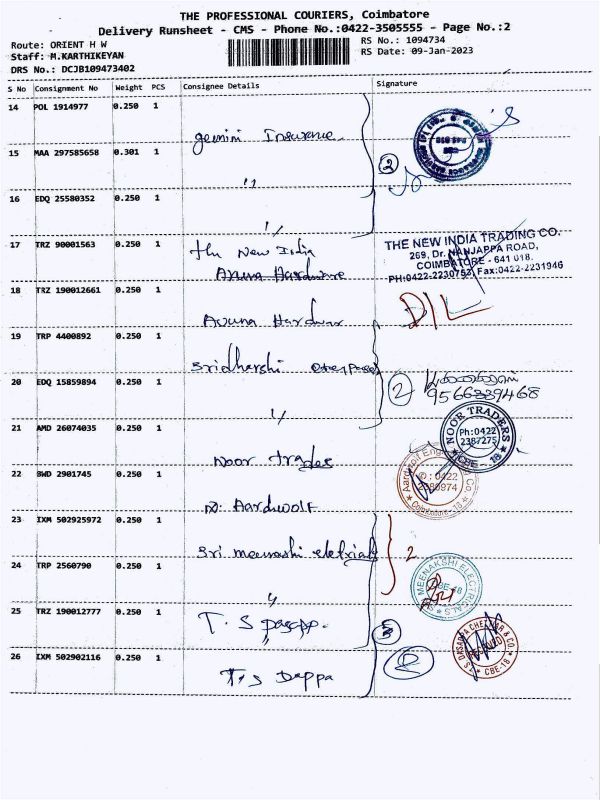 THE PROFESSIONAL COURIERS, Coimbatore
Delivery Runsheet - CMS - Phone No.:0422-3505555 - Page No.:2
Route: ORIENT H W
RS No.: 1094734
Staff: M.KARTHIKEYAN
RS Date: 09-Jan-2023
DRS No.: DCJB109473402
S No Consignment No Weight PCS Consignee Details Signature
14 POL 1914977 0.250 1 gemini Insurance
15 MAA 297585658 0.301 1 "
2
16 EDQ 25580352 0.250 1 "
17 TRZ 90001563 0.250 1 the New India
Aruna Hardware
THE NEW INDIA TRADING CO.
269, Dr. NANJAPPA ROAD,
COIMBATORE - 641 018.
PH:0422-2230753, Fax:0422-2231946
18 TRZ 190012661 0.250 1 Aruna Hardwar
D/L
19 TRP 4400892 0.250 1 Sridharshi
20 EDQ 15859894 0.250 1 "
2
9566339468
21 AMD 26074035 0.250 1 Noor trades
NOOR TRADERS
Ph:0422
2387275
CBE - 18
22 BWD 2901745 0.250 1 Aardwolf
0422
Coimbatore-18
23 IXM 502925972 0.250 1 Sri meenashi
2
24 TRP 2560790 0.250 1 "
MEENAKSHI ELECTRICALS
25 TRZ 190012777 0.250 1 T. S
"
26 IXM 502902116 0.250 1 T. S Dappa
2
DASAPPA CHETTIAR & CO.
CBE-18